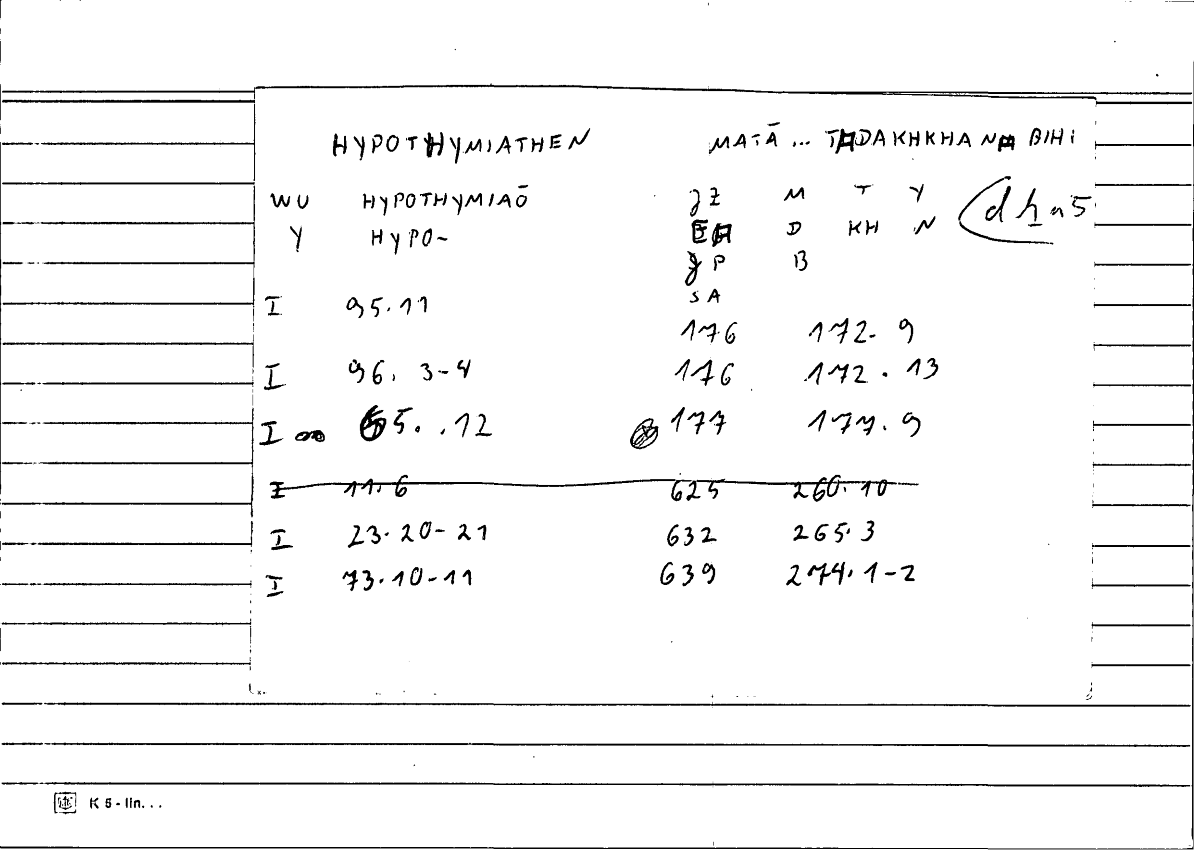 HYPOTHYMIATHEN MATĀ ... THDAKHKHANA BIHI
WU HYPOTHYMIAŌ Z M T Y
Y HYPO~ D KH N
P B
I 95.11 SA
176 172. 9
I 96. 3-4 176 172. 13
I 5. .12 177 177. 9
I 11.6 625 260.10
I 23.20-21 632 265.3
I 73.10-11 639 274.1-2
K 5 - lin. . .